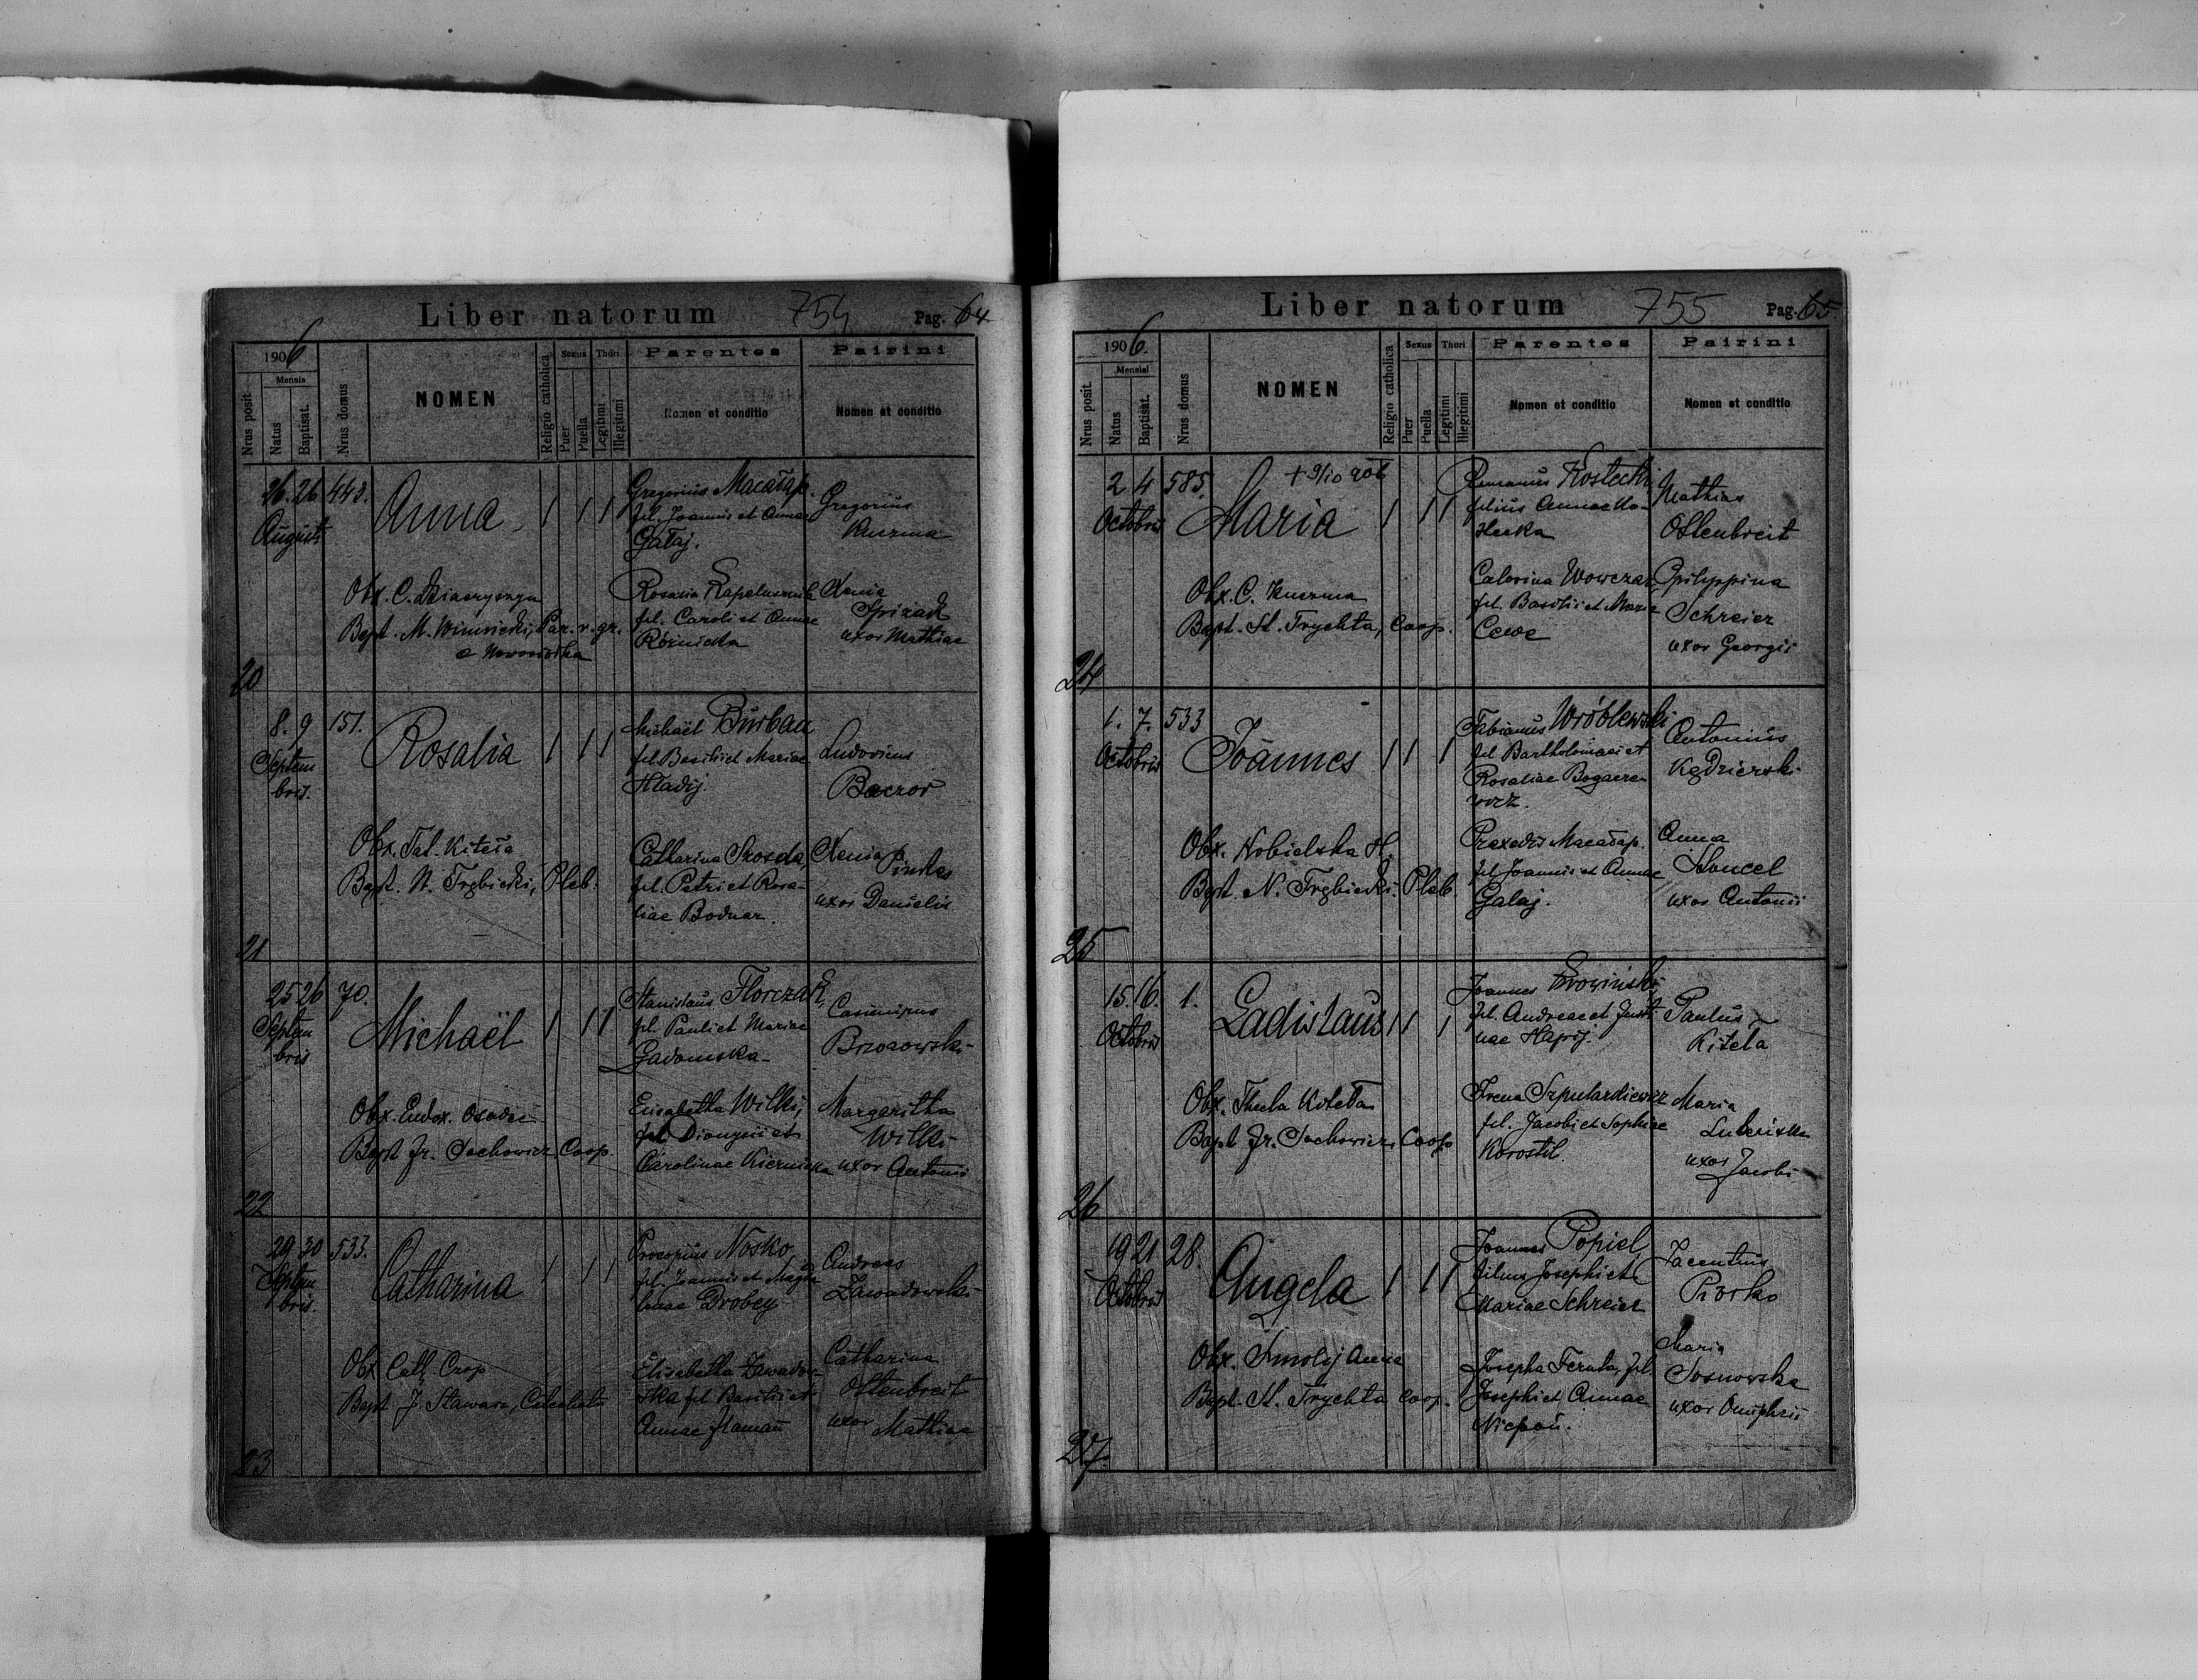 Liber natorum 754 Pag. 64.
1906
Mensis
Nrus posit
Natus
Baptisat.
Nrus domus
NOMEN
Religio catholica
Sexus
Puer
Puella
Thori
Legitimi
Illegitimi
Parentes
Nomen et conditio
Patrini
Nomen et conditio
26. 26 443.
Augusti
Anna
1 1 1
Gregorius
fil. Joannis et Annae
Galaj.
Gregorius
Kuzma
Obx. C.
Bapt. M. Winnicki, Par. r. gr.
Rosalia
fil. Caroli et Annae
Róznicka
Xenia
uxor Mathiae
20
8. 9 151.
Septem
bris.
Rosalia
1 1 1
Michaël Burban
fil. Basilii et Mariae
Hladij
Ludovicus
Baczor
Obx. Tat. Kiteła
Bapt. N. Trębicki, Pleb.
Catharina
fil. Petri et Rosa-
liae Bodnar.
Xenia
uxor Danielis
21
25 26 70.
Septem
bris
Michaël
1 1 1
Stanislaus Florczak,
fil. Pauli et Mariae
Gadomska
Casimirus
Brzozowski
Obx. Eudox.
Bapt Fr. Sochowicz, Coop.
Elisabetha Wilki,
fil. Dionysii et
Carolinae
Margaritha
Wilki
uxor Antonii
22
29 30 533.
Septem
bris.
Catharina
1 1 1
Procopius Nosko,
fil. Joannis et Magda
lenae Drobey
Andreas
Zawadowski
Obx Cath. Czop
Bapt J. Stawarz, Catecheta
Elisabetha Zawadow-
ska fil Basilii et
Annae
Catharina
Oftenbreit
uxor
Mathiae
23
Liber natorum 755 Pag. 65
1906.
Mensis
Nrus posit.
Natus
Baptisat.
Nrus domus
NOMEN
Religio catholica
Sexus
Puer
Puella
Thori
Legitimi
Illegitimi
Parentes
Nomen et conditio
Patrini
Nomen et conditio
2 4 585.
Octobris
+ 9/10 906
Maria
1 1 1
Romanus Kostecki
filius Annae Ko-
stecka
Mathias
Oftenbreit
Obx. C. Kuzma
Bapt. St. Trychta, Coop.
fil. Basilii et Mariae
Philippina
Schreier
uxor Georgii
24
1. 7. 533
Octobris
Joannes
1 1 1
Fabianus Wróblewski
fil Bartholomaei et
Rosaliae
wicz.
Antonius
Kędzierski
Obx. Kobielska H.
Bapt. N. Trębicki. Pleb
Praxedis
fil Joannis et Annae
Galaj.
Anna
uxor Antonii
25
15. 16. 1.
Octobris
Ladislaus
1 1 1
Joannes
fil. Andreae et Justi
nae
Paulus
Kiteła
Obx. Thecla Kiteła
Bapt Fr. Sochowicz, Coop
Irena
fil. Jacobi et Sophiae
Korostil.
Maria
uxor
Jacobi
26
19 21 28.
Octobris
Angela
1 1 1
Joannes Popiel
filius Josephi et
Mariae Schreier
Jacentius
Piórko
Obx. Smolij Anna
Bapt. St. Trychta Coop.
Josepha Feruta, fil.
Josephi et Annae
Niepoń.
Maria
Sosnowska
uxor Onuphrii
27.